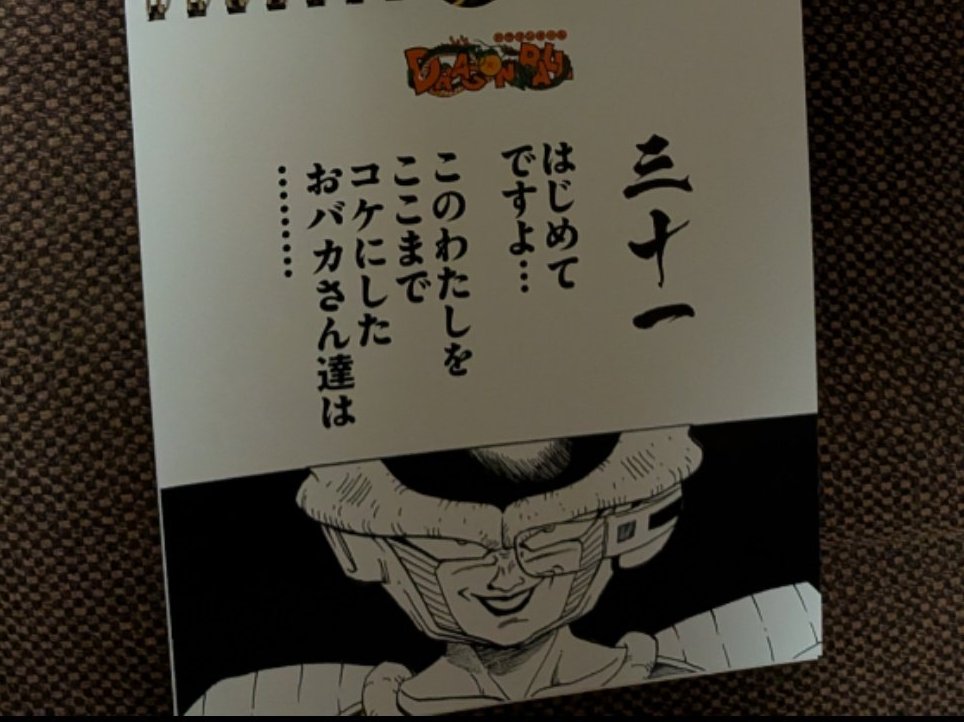 DRAGON BALL
三十一
はじめて
ですよ…
このわたしを
ここまで
コケにした
おバカさん達は
………